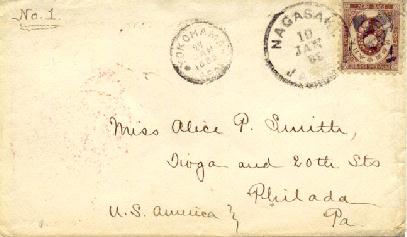 No. 1
YOKOHAMA
NAGASAKI
10
JAN
JAPAN
Miss Alice P. Smith,
Tioga and 20th Sts
Philada
U.S. America
Pa.